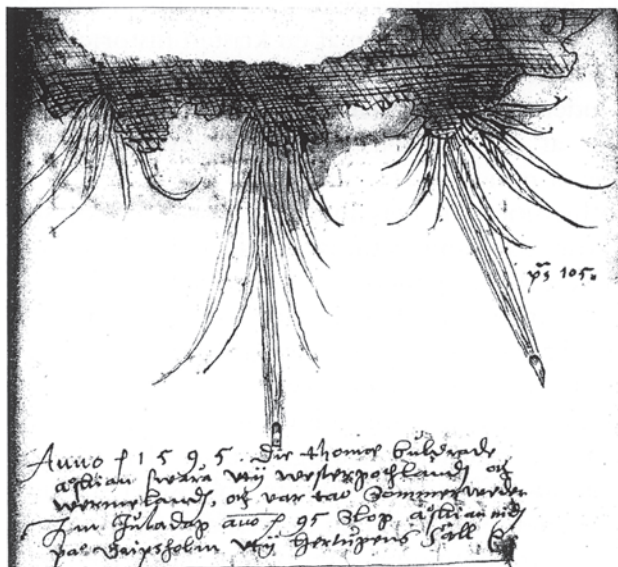 ps 105.
Anno 1595. Die thomæ buldrade
åskian swåra vtij westergothlandh och
wermelandh, och var tao Sommerweder
Jm Juladag anno 95 Slog åskian nidh
på Gripsholm vtij Hertugens Sall